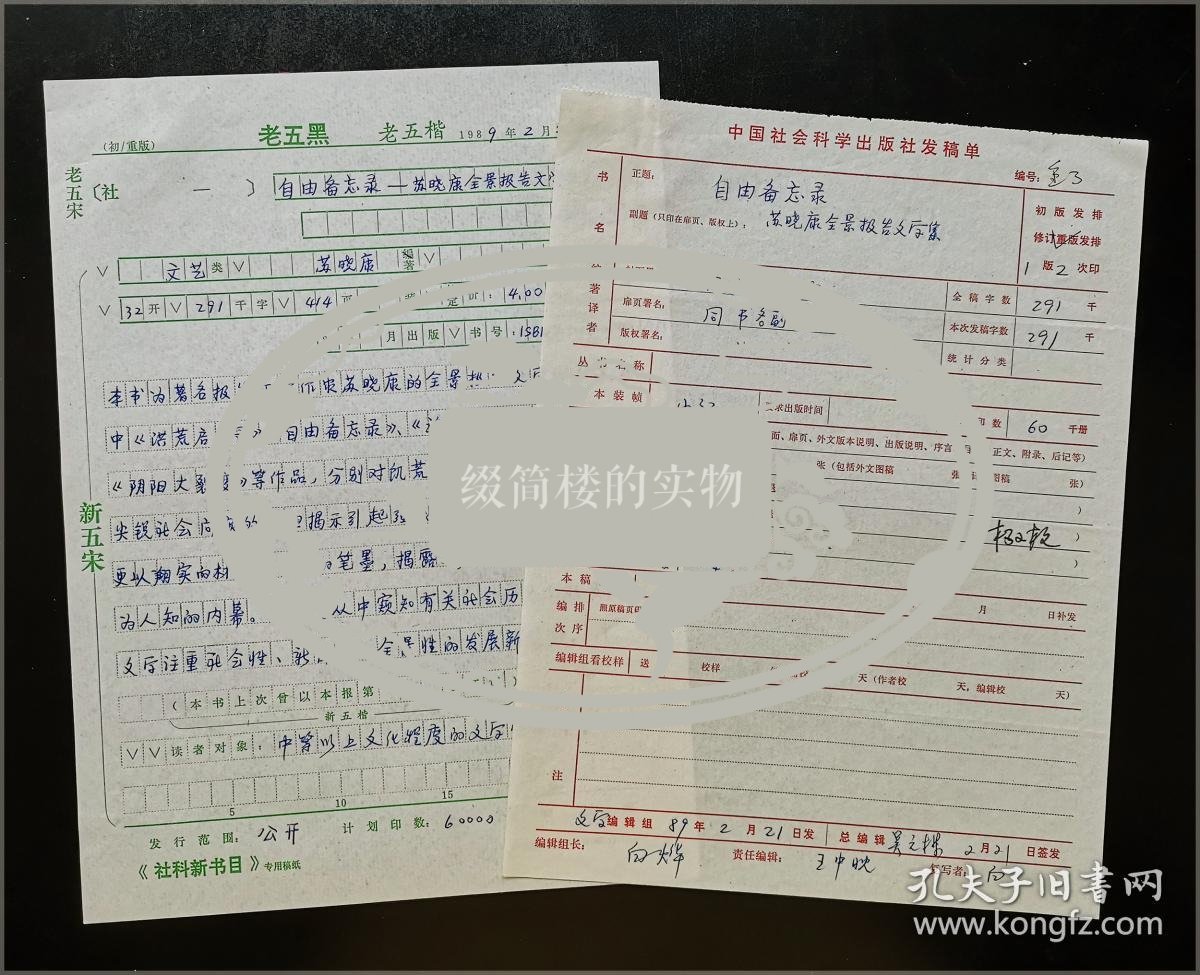 (初/重版)
老五黑
老五楷
1989年2月
老五宋
〔社 一 〕
自由备忘录—苏晓康全景报告文
文艺类∨ 苏晓康 编著∨
∨32开∨291千字∨414 定价:4.00
月出版∨书号:ISB
本书为著名报 苏晓康的全景 文
中《洪荒启 》 自由备忘录》、《
《阴阳大裂变》等作品,分别对饥荒
尖锐社会 揭示引起
更以翔实的材 的笔墨,揭露
为人知的内幕。 从中窥知有关社会历
文学注重社会性、 全景性的发展新
新五宋
(本书上次曾以本报第 )
新五楷
∨∨读者对象:中等以上文化程度的文学
5 10 15
发行范围:公开 计划印数:60000
《社科新书目》专用稿纸
中国社会科学出版社发稿单
编号:
书名
正题: 自由备忘录
副题(只印在扉页、版权上): 苏晓康全景报告文学集
初版发排
修订重版发排
1版2次印
著译者
扉页署名: 同书名副
版权署名:
全稿字数 291 千
本次发稿字数 291 千
丛书名称
统计分类
本装帧
求出版时间
印数 60 千册
面、扉页、外文版本说明、出版说明、序言 正文、附录、后记等)
张(包括外文图稿 张 图稿 张)
)
)
)
本稿
月 日补发
编排次序
照原稿页
编辑组看校样 送 校样 天(作者校 天,编辑校 天)
注
文学编辑组 89年2月21日发 总编辑 2月21日签发
编辑组长: 白烨 责任编辑: 王中忱 填写者: 白
缀简楼的实物
孔夫子旧书网
www.kongfz.com